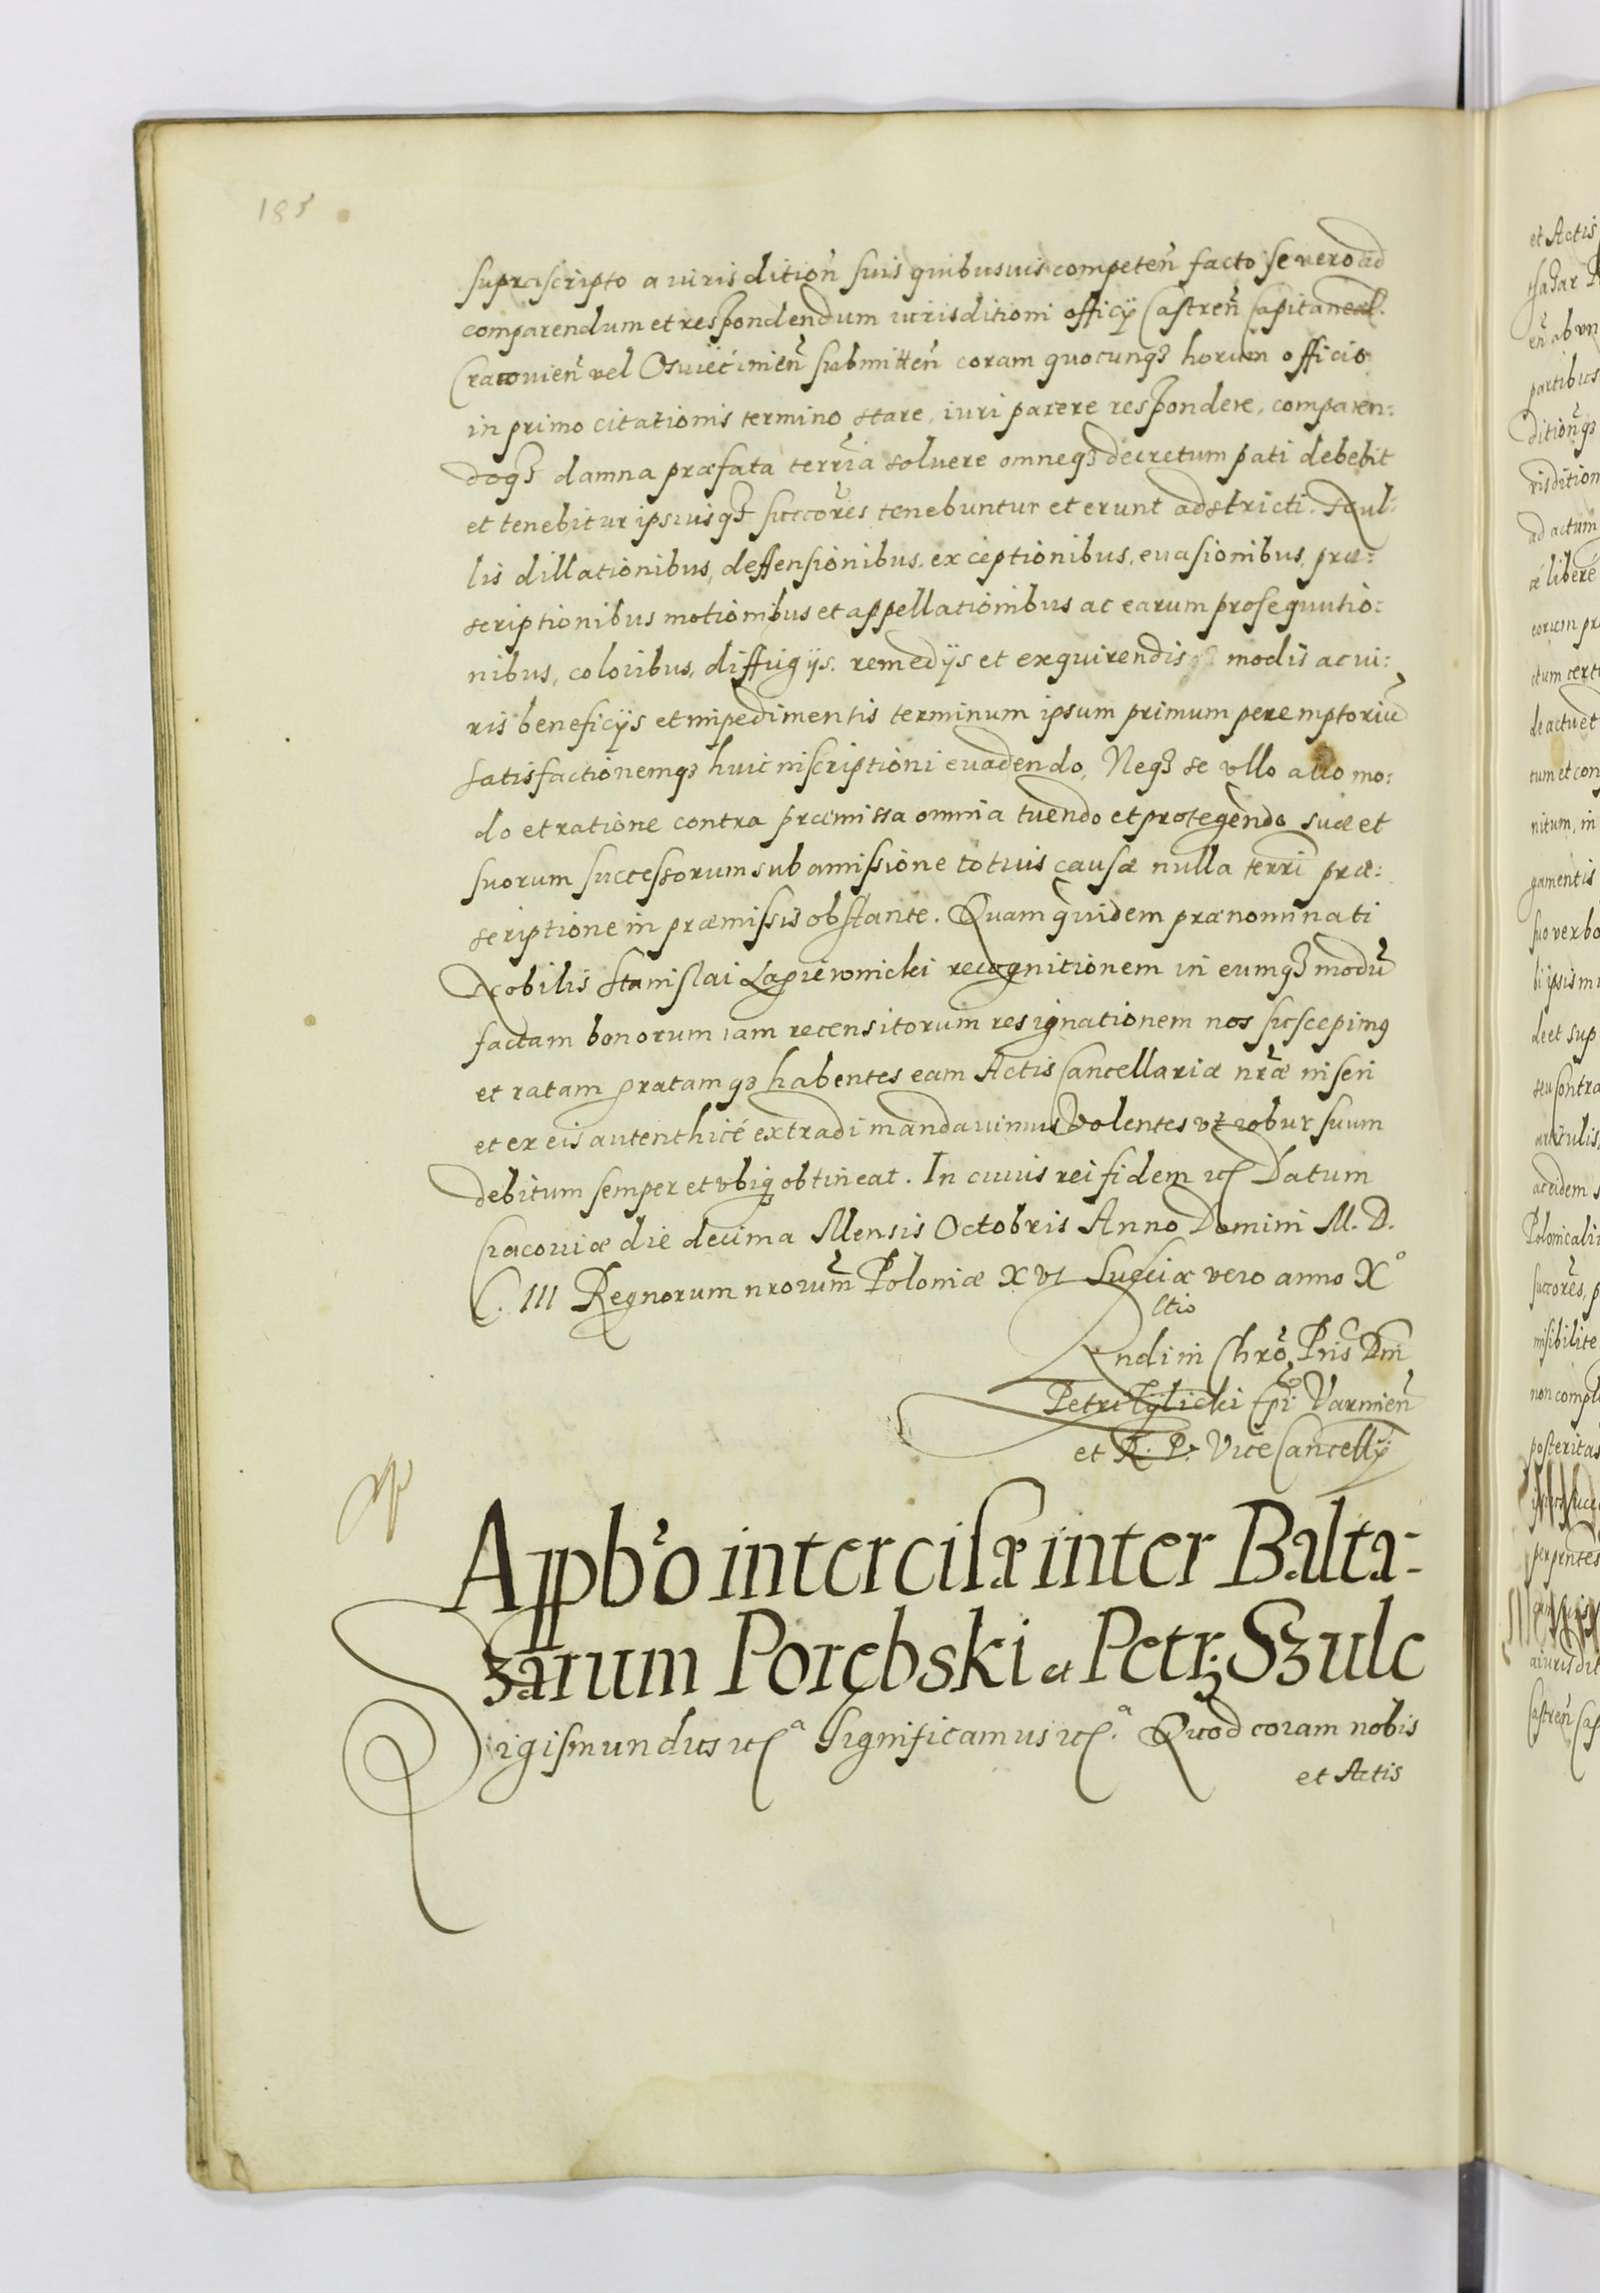 185
suprascripto a iurisdition̄ suis quibusuis competen̄ facto se vero ad
comparendum et respondendum iurisditioni officij Castren̄ Capitaneal.
Cracouien̄ vel Osuiecimen̄ submitten̄ coram quocunqȝ horum officio
in primo citationis termino stare, iuri parere respondere, comparen:
doqȝ damna præfata terr̄ia soluere omneqȝ decretum pati debebit
et tenebitur ipsiusqȝ succōres tenebuntur et erunt adstricti. Nul:
lis dillationibus, deffensionibus, exceptionibus, euasionibus, præ:
scriptionibus motionibus et appellationibus ac earum prosequutio:
nibus, coloribus, diffugijs, remedijs et exquirendis modis ac iu:
ris beneficijs et impedimentis terminum ipsum primum peremptoriū
satisfactionemqȝ huic inscriptioni euadendo, Neqȝ se vllo alio mo:
do et ratione contra præmissa omnia tuendo et protegendo suæ et
suorum successorum sub amissione totius causæ nulla terr̄i præ:
scriptione in præmissis obstante. Quam quidem prænominati
Nobilis Stanislai Lapieiowicki recognitionem in eumqȝ modū
factam bonorum iam recensitorum resignationem nos suscepimꝰ
et ratam gratamqȝ habentes eam Actis Cancellariæ nr̄æ inseri
et ex eis autenthicé extradi mandauimus volentes vt robur suum
debitum semper et vbiqȝ obtineat. In cuius rei fidem etc Datum
Cracouiæ die decima Mensis Octobris Anno Domini M. D.
C. III Regnorum nrorum̄ Poloniæ XVI Sueciæ vero anno X°
ctio
Rndi in Chrō Pris Dni
Petri Tijlicki Epi Varmien̄
et R. P. ViceCancellij
Appb̄o intercisæ inter Balta-
zarum Porębski et Petrȝ Szulc
Sigismundus etcͣ Significamus etcͣ. Quod coram nobis
et Actis
et Actis
en̄ ab vn
partibus
ditionqȝ
risdition
ad actum
æ libere
eorum pr
ctum cert
de actu et
tum et con
nitum, in
gamentis
suo verbo
bi ipsis m
de et sup
seu Contra
articulis,
ac eidem s
Polonicali
succōres, p
misibilite
non compl
posteritas
a iurisdit
Castren̄ Cap